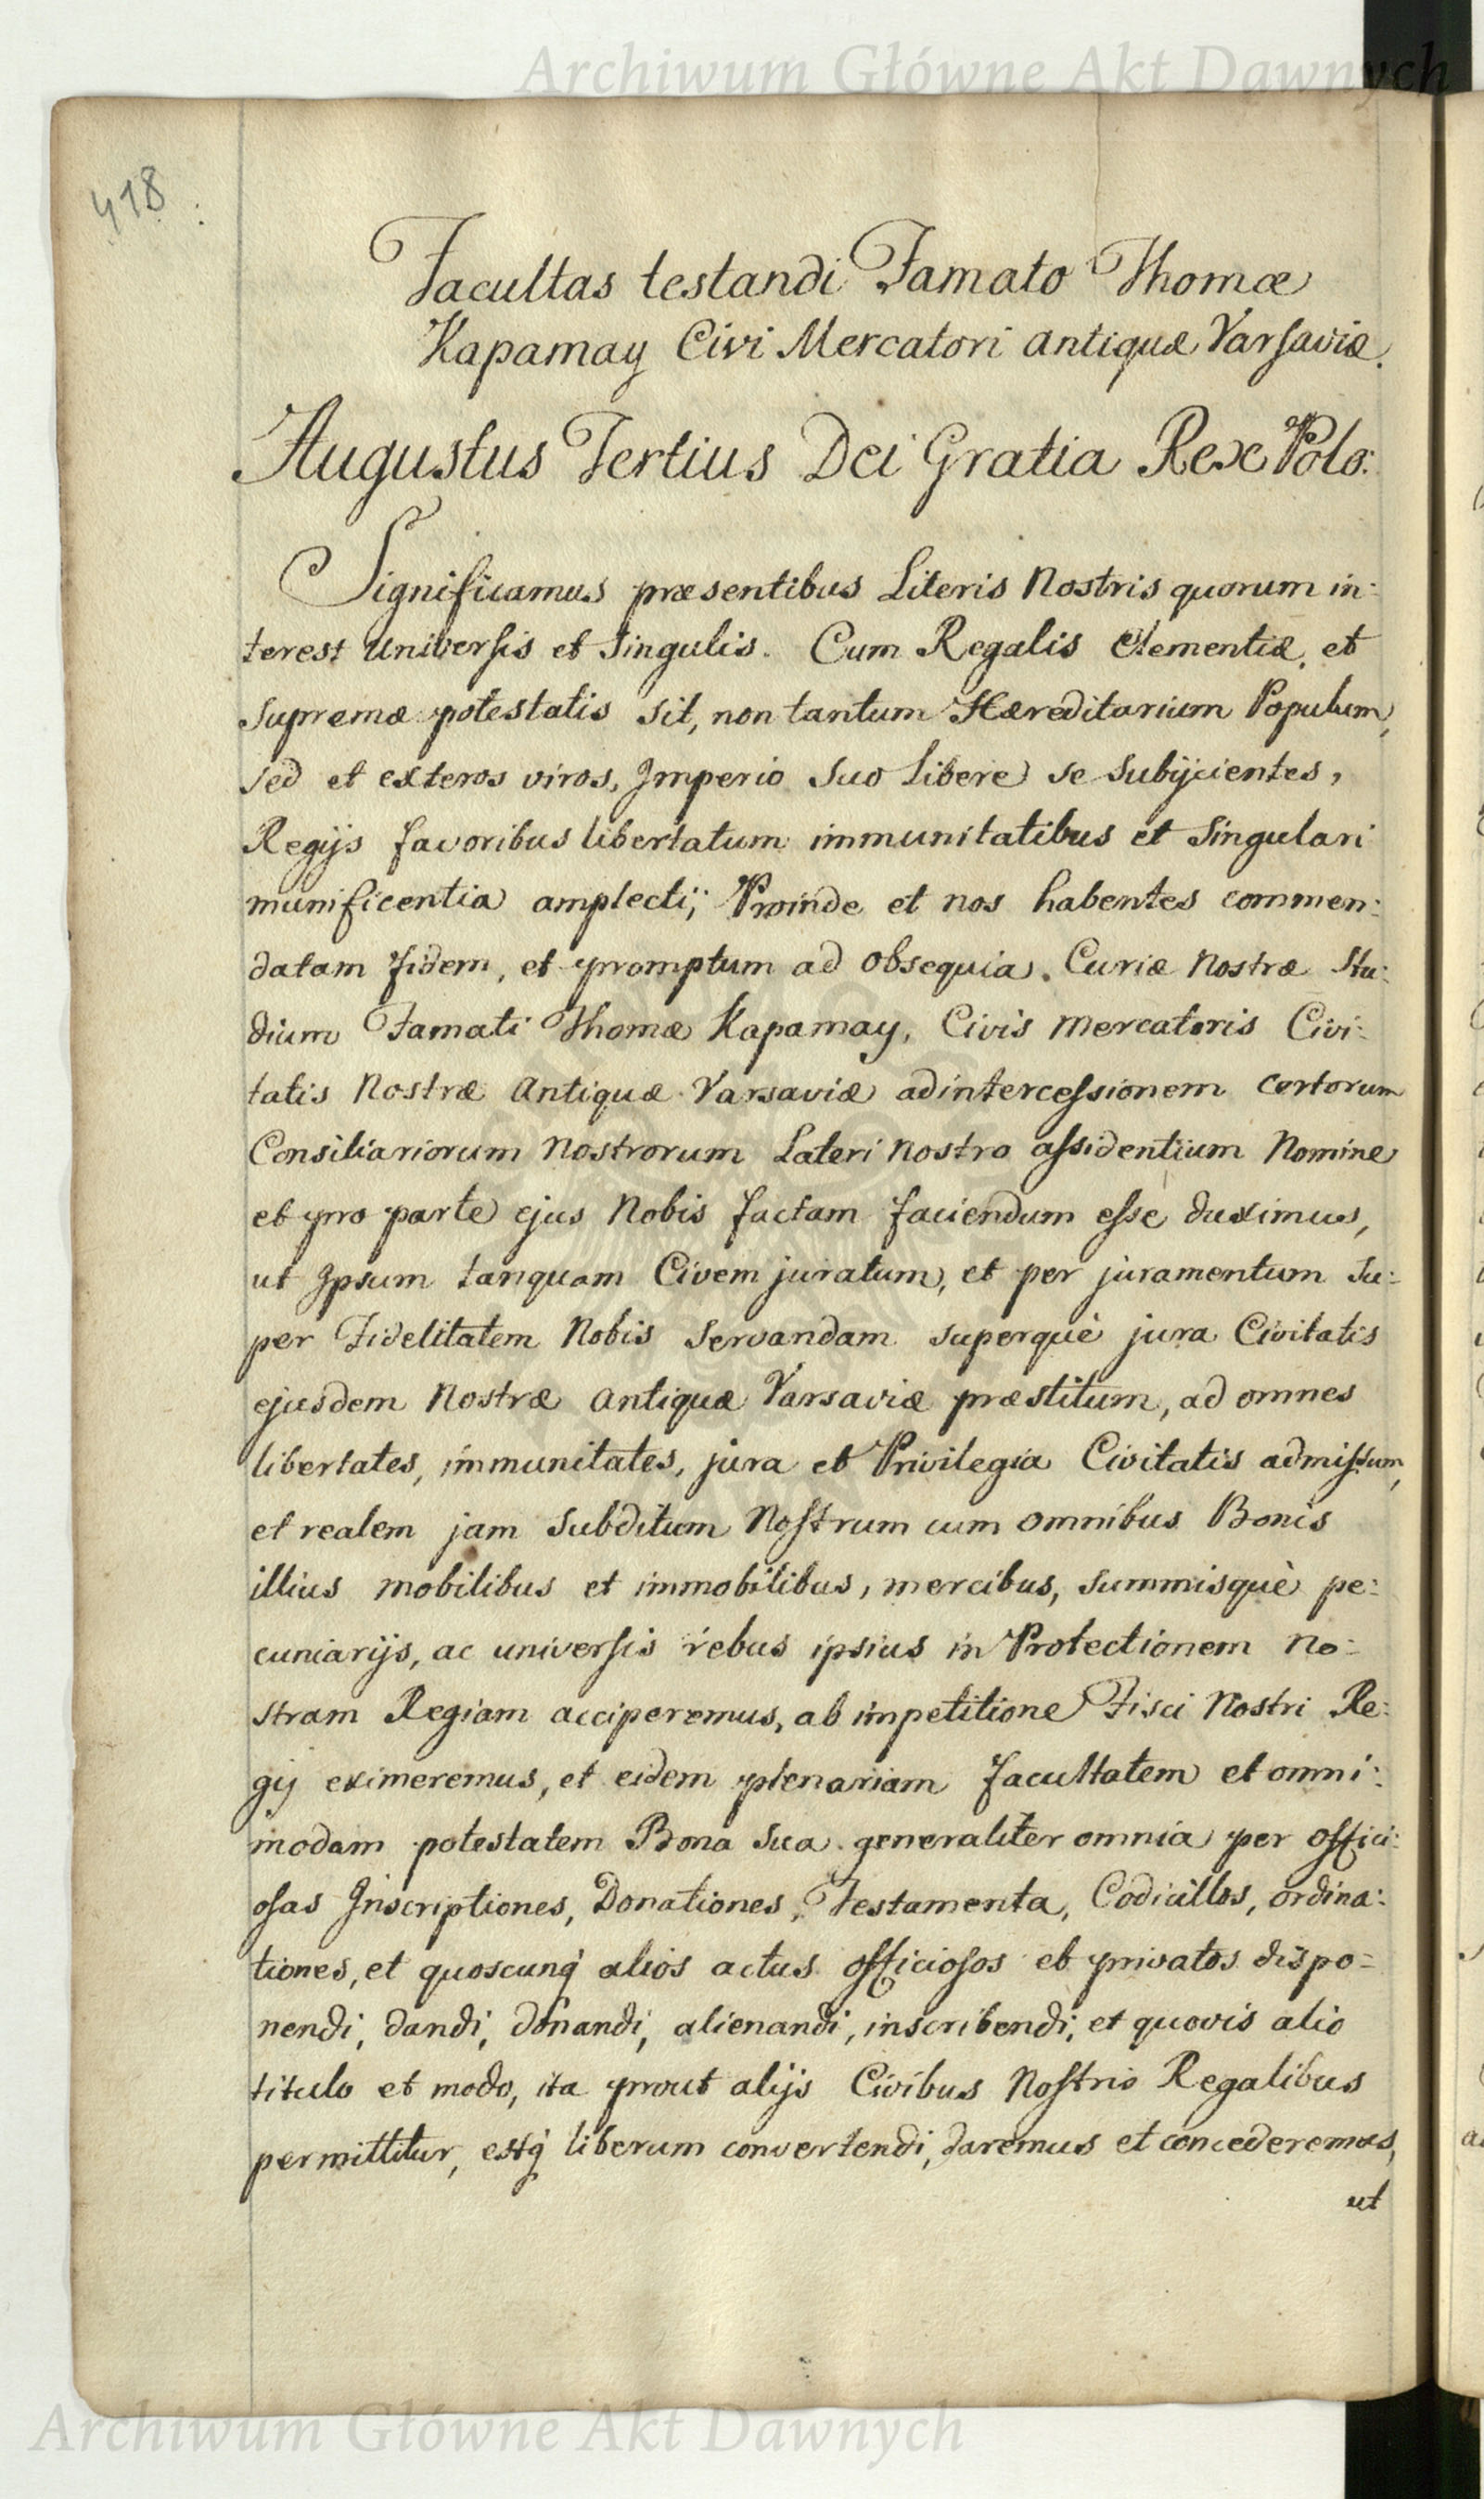 Archiwum Główne Akt Dawnych
418
Facultas testandi Famato Thomæ
Kapamay Civi Mercatori antiquæ Varsaviæ.
Augustus Tertius Dei Gratia Rex Polo:
Significamus præsentibus Literis Nostris quorum in:
terest Universis et Singulis. Cum Regalis Clementiæ, et
Supremæ potestatis sit, non tantum Hæreditarium Populum,
sed et exteros viros, Imperio Suo Libere se Subijcientes,
Regijs favoribus libertatum immunitatibus et Singulari
munificentia amplecti; Proinde et nos habentes commen:
datam fidem, et promptum ad obsequia. Curiæ Nostræ Stu:
dium Famati Thomæ Kapamay, Civis Mercatoris Civi:
tatis Nostræ Antiquæ Varsaviæ ad intercessionem certorum
Consiliariorum Nostrorum Lateri Nostro assidentium Nomine
et pro parte ejus Nobis factam faciendum esse duximus,
ut Ipsum tanquam Civem juratum, et per juramentum Su:
per Fidelitatem Nobis Servandam superquè jura Civitatis
ejusdem Nostræ Antiquæ Varsaviæ præstitum, ad omnes
libertates, immunitates, jura et Privilegia Civitatis admissum,
et realem jam Subditum Nostrum cum omnibus Bonis
illius mobilibus et immobilibus, mercibus, Summisquè pe:
cuniarijs, ac universis rebus ipsius in Protectionem No:
stram Regiam acciperemus, ab impetitione Fisci Nostri Re:
gij eximeremus, et eidem plenariam facultatem et omni:
modam potestatem Bona Sua generaliter omnia per offici:
osas Inscriptiones, Donationes, Testamenta, Codicillos, ordina:
tiones, et quoscunq́ alios actus officiosos et privatos dispo:
nendi, dandi, donandi, alienandi, inscribendi, et quovis alio
titulo et modo, ita prout alijs Civibus Nostris Regalibus
permittitur, estq́ liberum convertendi, daremus et concederemus,
ut
Archiwum Główne Akt Dawnych